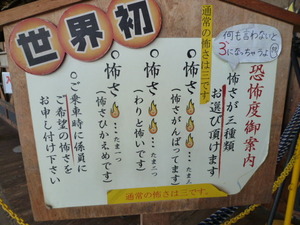 世界初
通常の怖さは三です。
何も言わないと
3になっちゃうよ
恐怖度御案内
怖さが三種類
お選び頂けます
◦怖さ…たま三
(怖さがんばってます)
◦怖さ…たま二つ
(わりと怖いです)
◦怖さ…たま一つ
(怖さひかえめです)
○ご乗車時に係員に
ご希望の怖さを
お申し付け下さい
通常の怖さは三です。